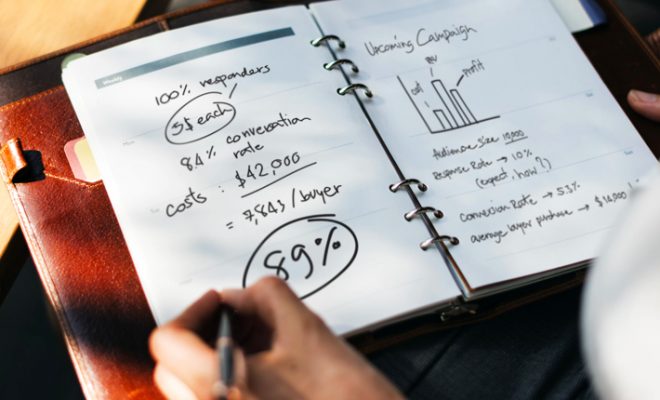 Weekly
100% responders
5$ each
84% conversation
rate
costs : $42,000
= 7,843/buyer
89%
Upcoming Campaign
cost
Profit
Audience size 10,000
Response Rate → 10%
(expect, how?)
Conversion Rate → 5.3%
average buyer purchase → $14,000